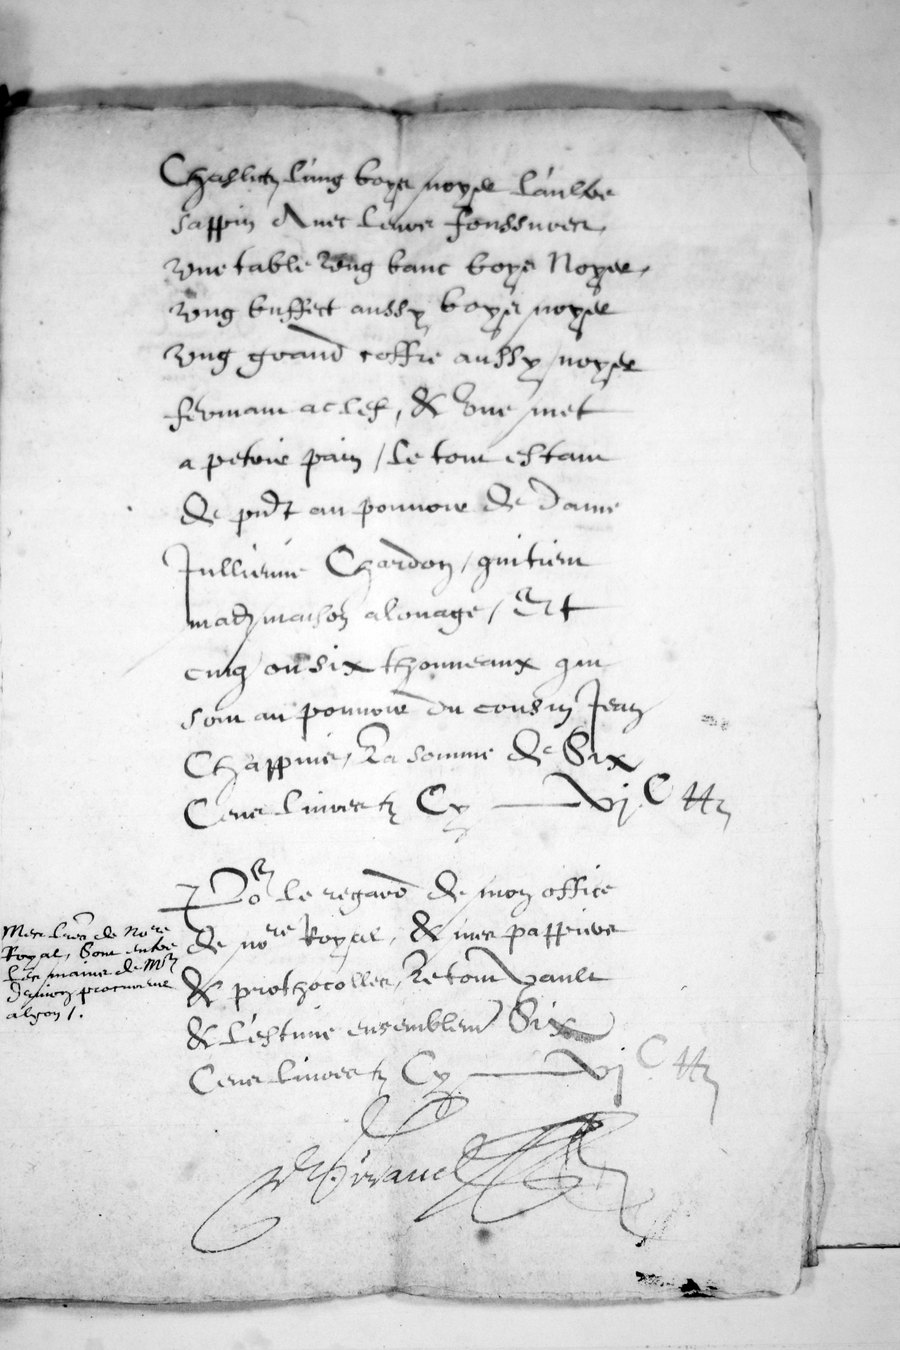 Chaslictz l'ung boys noyer l'aultre
sappin avec leurs foussures,
une table ung banc boys Noyer,
ung buffect aussy boys noyer
ung grand coffre aussy noyer
fermant a clef, & une met
a petrir pain, le tout estant
de pnt au pouvoir de Dame
Jullienne Chardon, qui tient
mad maison a louage, Et
cinq ou six thonneaux qui
sont au pouvoir du cousin Jean
Chappuis, La somme de Six
Cens livres tz Cy — vj C tt
Por le regard de mon office
de nore Royal, & mes pappiers
& prothocolles, Le tout vault
& l'estime ensemblemt Six
Cens livres tz Cy — vj C tt
Mes lres de Nore
Royal, sont entre
les mains de Mr
procureur